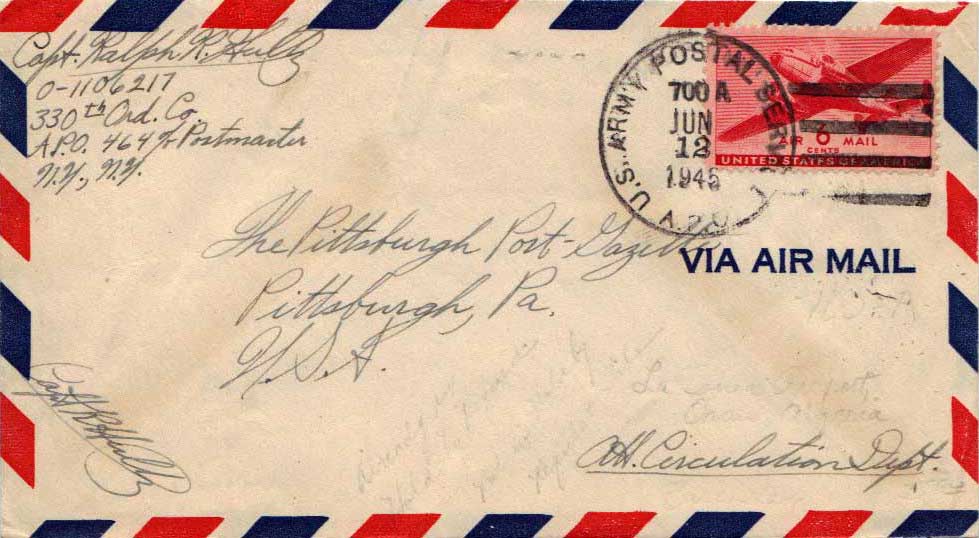 Capt. Ralph R. Hultz
O-1106217
330th Ord. Co.
A.P.O. 464 c/o Postmaster
N.Y., N.Y.
U.S. ARMY POSTAL SERVICE
700 A
JUN
12
1945
A.P.O.
AIR 6 MAIL
CENTS
UNITED STATES OF AMERICA
The Pittsburgh Post-Gazette
VIA AIR MAIL
Pittsburgh, Pa.
U.S.A.
Capt R R Hultz
Att. Circulation Dept.